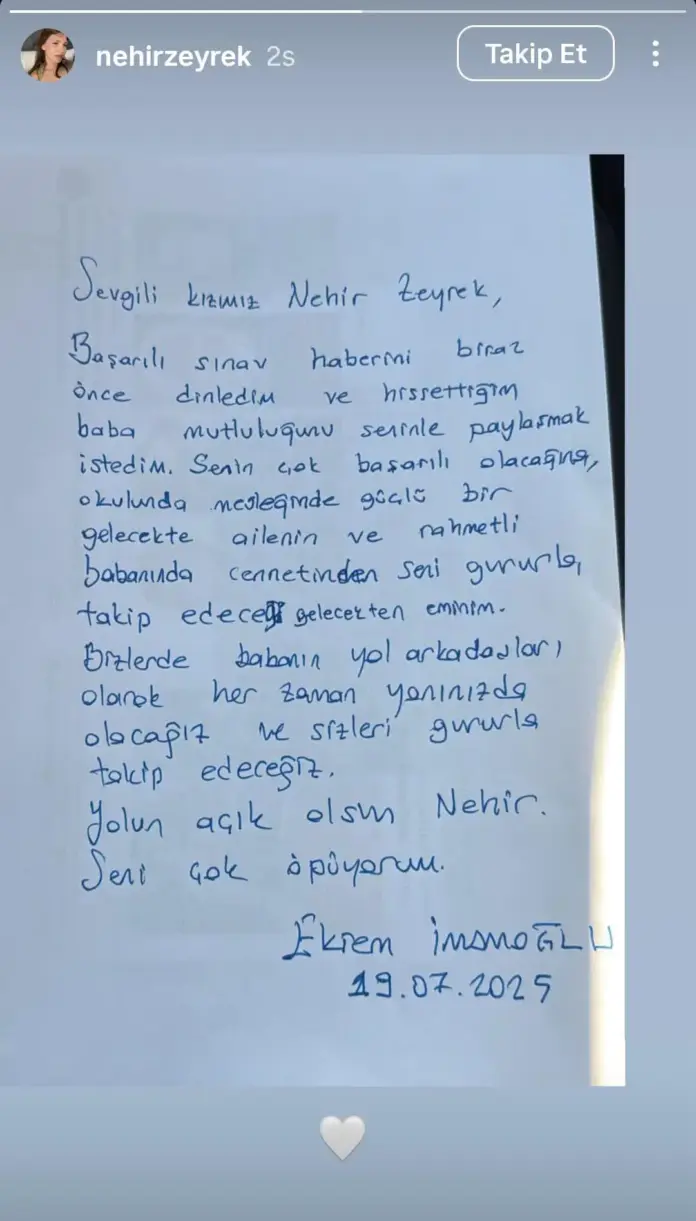 nehirzeyrek 2s
Takip Et
Sevgili kızmız Nehir Zeyrek,
Başarılı sınav haberini biraz
önce dinledim ve hissettiğim
baba mutluluğunu seninle paylaşmak
istedim. Senin çok başarılı olacağına,
okulunda mesleğinde güçlü bir
gelecekte ailenin ve rahmetli
babanında cennetinden seni gururla,
takip edeceği gelecekten eminim.
Bizlerde babanın yol arkadaşları
olarak her zaman yanınızda
olacağız ve sizleri gururla
takip edeceğiz.
Yolun açık olsun Nehir.
Seni çok öpüyorum.
Ekrem İMAMOĞLU
19.07.2025